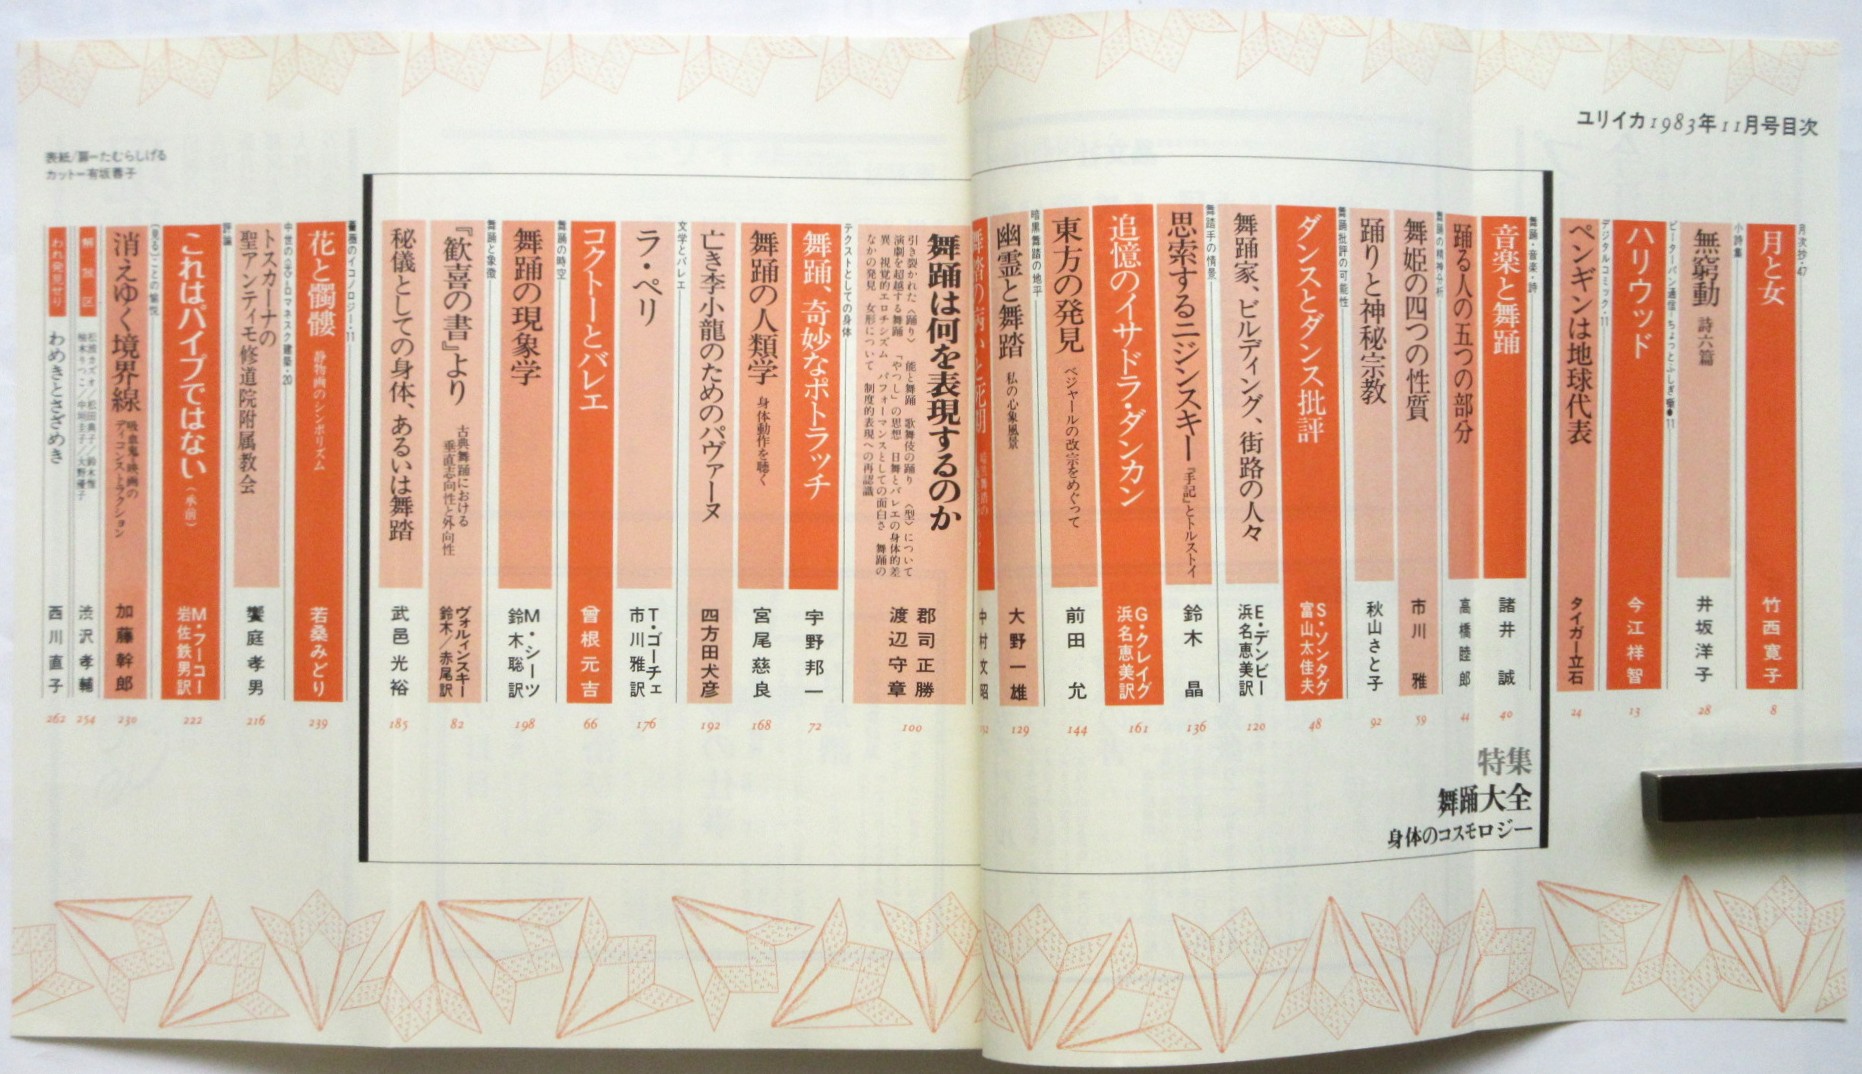 ユリイカ1983年11月号目次
月次抄・47
月と女
竹西寛子
8
小詩集
無窮動 詩六篇
井坂洋子
28
ピーターパン通信・ちょっとふしぎ
ハリウッド
今江祥智
13
デジタルコミック・11
ペンギンは地球代表
タイガー立石
24
特集
舞踊大全
身体のコスモロジー
舞踊・音楽・詩
音楽と舞踊
諸井 誠
40
踊る人の五つの部分
高橋睦郎
44
舞踊の精神分析
舞姫の四つの性質
市川 雅
59
踊りと神秘宗教
秋山さと子
92
舞踊批評の可能性
ダンスとダンス批評
S・ソンタグ
富山太佳夫
48
舞踊家、ビルディング、街路の人々
E・デンビー
浜名恵美訳
120
舞踏手の情景
思索するニジンスキー 『手記』とトルストイ
鈴木 晶
136
追憶のイサドラ・ダンカン
G・クレイグ
浜名恵美訳
161
東方の発見 ベジャールの改宗をめぐって
前田 允
144
暗黒舞踏の地平
幽霊と舞踏 私の心象風景
大野一雄
129
中村文昭
舞踊は何を表現するのか
引き裂かれた〈踊り〉 能と舞踊 歌舞伎の踊り 〈型〉について
演劇を超越する舞踊 「やつし」の思想 日舞とバレエの身体的差
異 視覚的エロチシズム パフォーマンスとしての面白さ 舞踊の
なかの発見 女形について 制度的表現への再認識
郡司正勝
渡辺守章
100
テクストとしての身体
舞踊、奇妙なポトラッチ
宇野邦一
72
舞踊の人類学 身体動作を聴く
宮尾慈良
168
亡き李小龍のためのパヴァーヌ
四方田犬彦
192
文学とバレエ
ラ・ペリ
T・ゴーチェ
市川雅訳
176
コクトーとバレエ
曾根元吉
66
舞踊の時空
舞踊の現象学
M・シーツ
鈴木聡訳
198
舞踊と象徴
『歓喜の書』より 古典舞踊における
垂直志向性と外向性
ヴォルィンスキー
鈴木/赤尾訳
82
秘儀としての身体、あるいは舞踏
武邑光裕
185
薔薇のイコノロジー・11
花と髑髏 静物画のシンボリズム
若桑みどり
239
中世の光・ロマネスク建築・20
トスカーナの
聖アンティモ修道院附属教会
饗庭孝男
216
評論
これはパイプではない(承前)
M・フーコー
岩佐鉄男訳
222
〈見る〉ことの愉悦
消えゆく境界線 吸血鬼・映画の
ディコンストラクション
加藤幹郎
230
解放区
渋沢孝輔
254
われ発見せり
わめきとさざめき
西川直子
262
表紙/扉ーたむらしげる